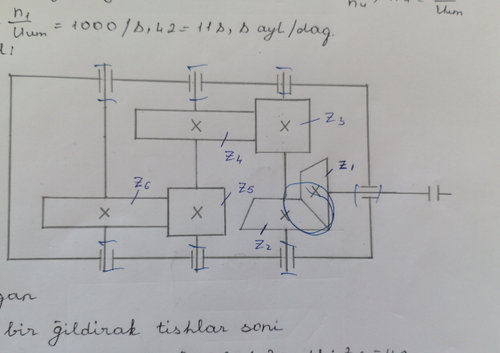 n₁
/Uum = 1000/8,42 = 118,8 ayl/daq.
Z₃
Z₄
Z₁
Z₆
Z₅
Z₂
gan
bir ğildirak tishlar soni